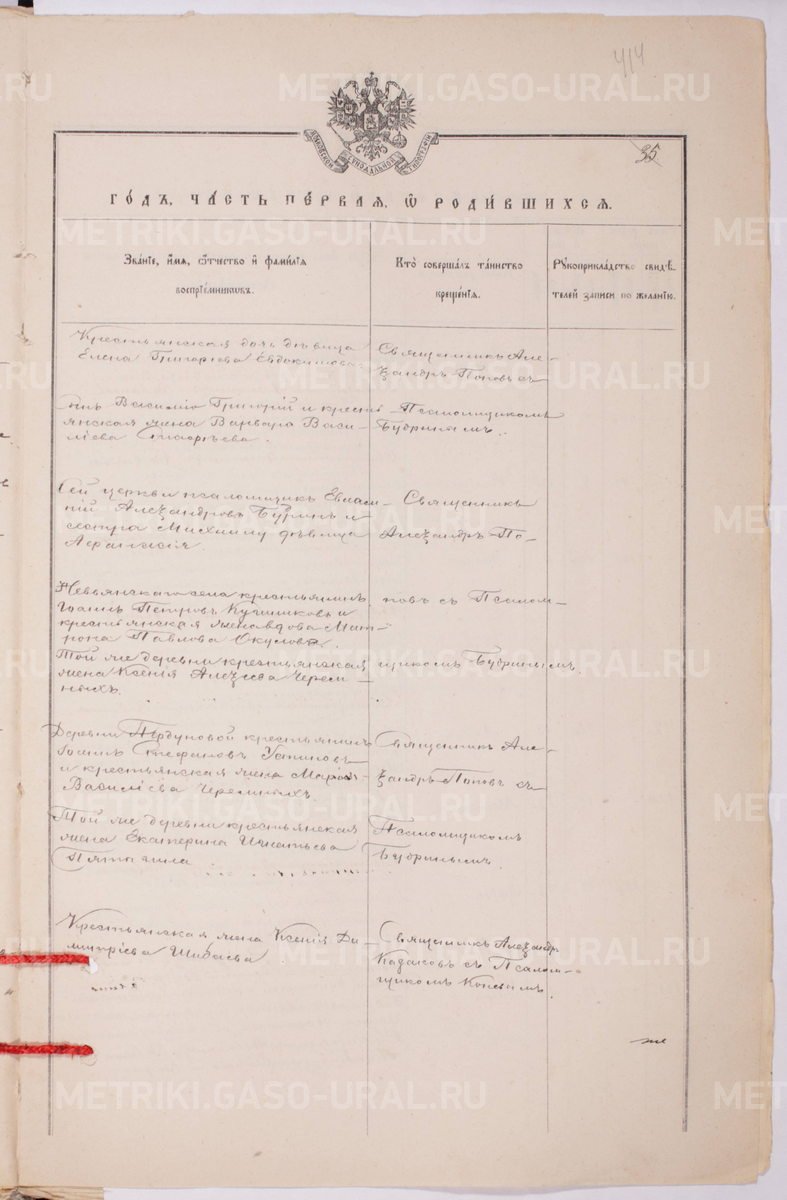 414
35
МОСКОВСКОЙ СУНОДАЛЬНОЙ ТИПОГРАФІИ
ГОДЪ, ЧАСТЬ ПЕРВАЯ, Ѿ РОДИВШИХСЯ.
Званіе, имя, ѿчество и фамилія
воспріемниковъ.
Кто совершалъ таинство
крещенія.
Рукоприкладство свидѣ-
телей записи по желанію.
Крестьянская дочь дѣвица
Елена Григорiева Евдокимова
Священникъ Але-
ѯандръ Поповъ съ
Василiю Григорiй и кресть-
янская жена Варвара Васи-
лiева
Псаломщикомъ
Бубринымъ.
Сей церкви псаломщикъ
Алеѯандровъ и
сестра дѣвица
Священникъ
Алеѯандръ По-
Невьянскаго села крестьянинъ
Iоаннъ Петровъ и
крестьянская вдова Мат-
рона Павлова
повъ съ Псалом-
Той же деревни крестьянская
жена Ксенiя Алеѯiева Черем-
ныхъ.
щикомъ Бубринымъ.
Деревни крестьянинъ
Стефановъ Устиновъ
и крестьянская жена
Василiева Черемныхъ.
Священникъ Але-
ѯандръ Поповъ съ
Той же деревни крестьянская
жена Екатерина Игнатьева
Пятыгина
Псаломщикомъ
Бубринымъ.
Крестьянская жена Ксенiя Ди-
митрiева Шибаева
Священникъ Алеѯандръ
Казаковъ съ Псалом-
щикомъ
METRIKI.GASO-URAL.RU